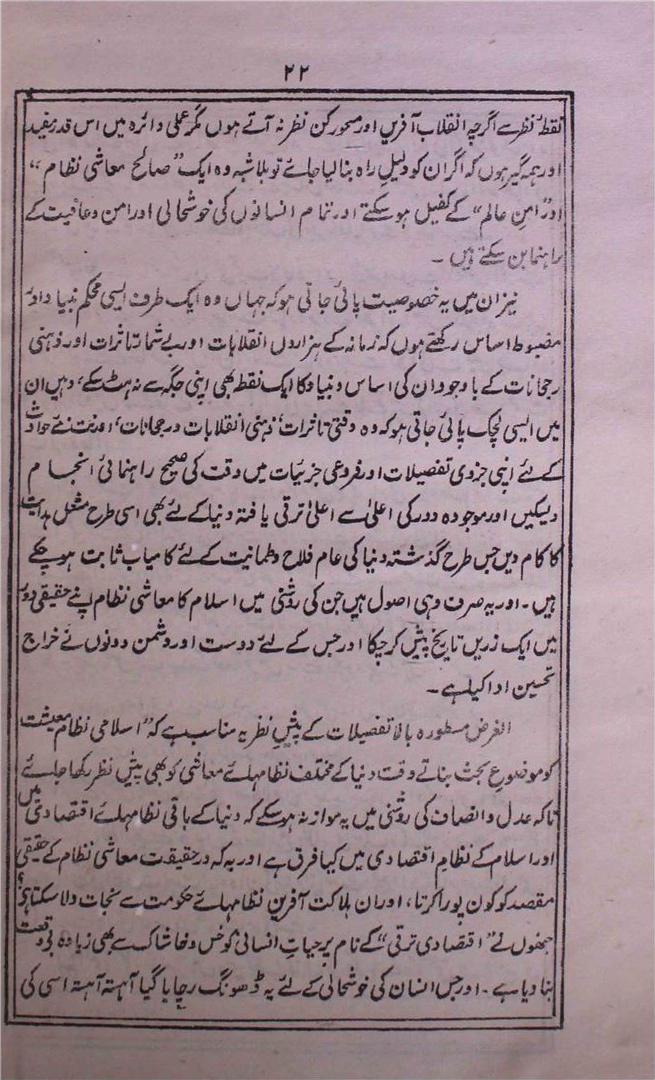 ۲۲
نقطۂ نظر سے اگرچہ انقلاب آفریں اور محور کن نظر نہ آتے ہوں مگر عملی دائرہ میں اس قدر مفید
اور ہمہ گیر ہوں کہ اگر ان کو دلیلِ راہ بنالیا جائے تو بلاشبہ وہ ایک "صالح معاشی نظام"
اور "امنِ عالم" کے کفیل ہو سکتے اور تمام انسانوں کی خوشحالی اور امن و عافیت کے
راہنما بن سکتے ہیں ۔
نیز ان میں یہ خصوصیت پائی جاتی ہو کہ جہاں وہ ایک طرف ایسی محکم بنیاد اور
مضبوط اساس رکھتے ہوں کہ زمانہ کے ہزاروں انقلابات اور بے شمار تاثرات اور ذہنی
رجحانات کے باوجود ان کی اساس و بنیاد کا ایک نقطہ بھی اپنی جگہ سے نہ ہٹ سکے، وہیں ان
میں ایسی لچک پائی جاتی ہو کہ وہ وقتی تاثرات، ذہنی انقلابات و رجحانات، اور نت نئے حوادث
کے لئے اپنی جزوی تفصیلات اور فروعی جزئیات میں وقت کی صحیح راہنمائی انجام
دیسکیں اور موجودہ دور کی اعلیٰ سے اعلیٰ ترقی یافتہ دنیا کے لئے بھی اسی طرح مشعل ہدایت
کا کام دیں جس طرح گذشتہ دنیا کی عام فلاح و طمانیت کے لئے کامیاب ثابت ہو چکے
ہیں ۔ اور یہ صرف وہی اصول ہیں جن کی روشنی میں اسلام کا معاشی نظام اپنے حقیقی دور
میں ایک زریں تاریخ پیش کر چکا اور جس کے لئے دوست اور دشمن دونوں نے خراج
تحسین ادا کیا ہے ۔
الغرض مسطورہ بالا تفصیلات کے پیشِ نظر یہ مناسب ہے کہ "اسلامی نظام معیشت"
کو موضوع بحث بناتے وقت دنیا کے مختلف نظامہائے معاشی کو بھی پیشِ نظر رکھا جائے
تاکہ عدل و انصاف کی روشنی میں یہ موازنہ ہو سکے کہ دنیا کے باقی نظامہائے اقتصادی میں
اور اسلام کے نظامِ اقتصادی میں کیا فرق ہے اور یہ کہ درحقیقت معاشی نظام کے حقیقی
مقصد کو کون پورا کرتا، اور ان ہلاکت آفریں نظامہائے حکومت سے نجات دلا سکتا ہے؟
جنھوں نے "اقتصادی ترقی" کے نام پر حیاتِ انسانی کو خس و خاشاک سے بھی زیادہ بے وقعت
بنا دیا ہے ۔ اور جس انسان کی خوشحالی کے لئے یہ ڈھونگ رچایا گیا آہستہ آہستہ اسی کی